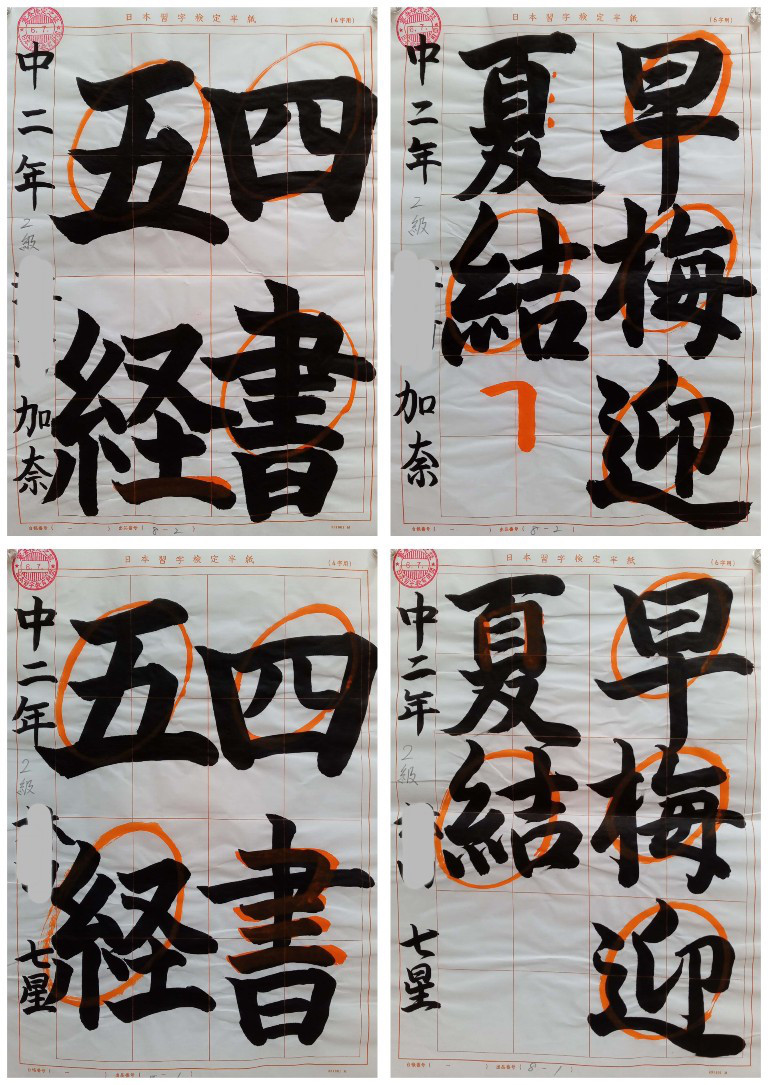 日本習字検定半紙
(4字用)
6.7.
四書
五経
中二年
2級
加奈
8-2
日本習字検定半紙
(6字用)
6.7.
早梅迎
夏結
中二年
2級
加奈
8-2
日本習字検定半紙
(4字用)
6.7.
四書
五経
中二年
2級
七星
日本習字検定半紙
(6字用)
6.7.
早梅迎
夏結
中二年
2級
七星
8-1